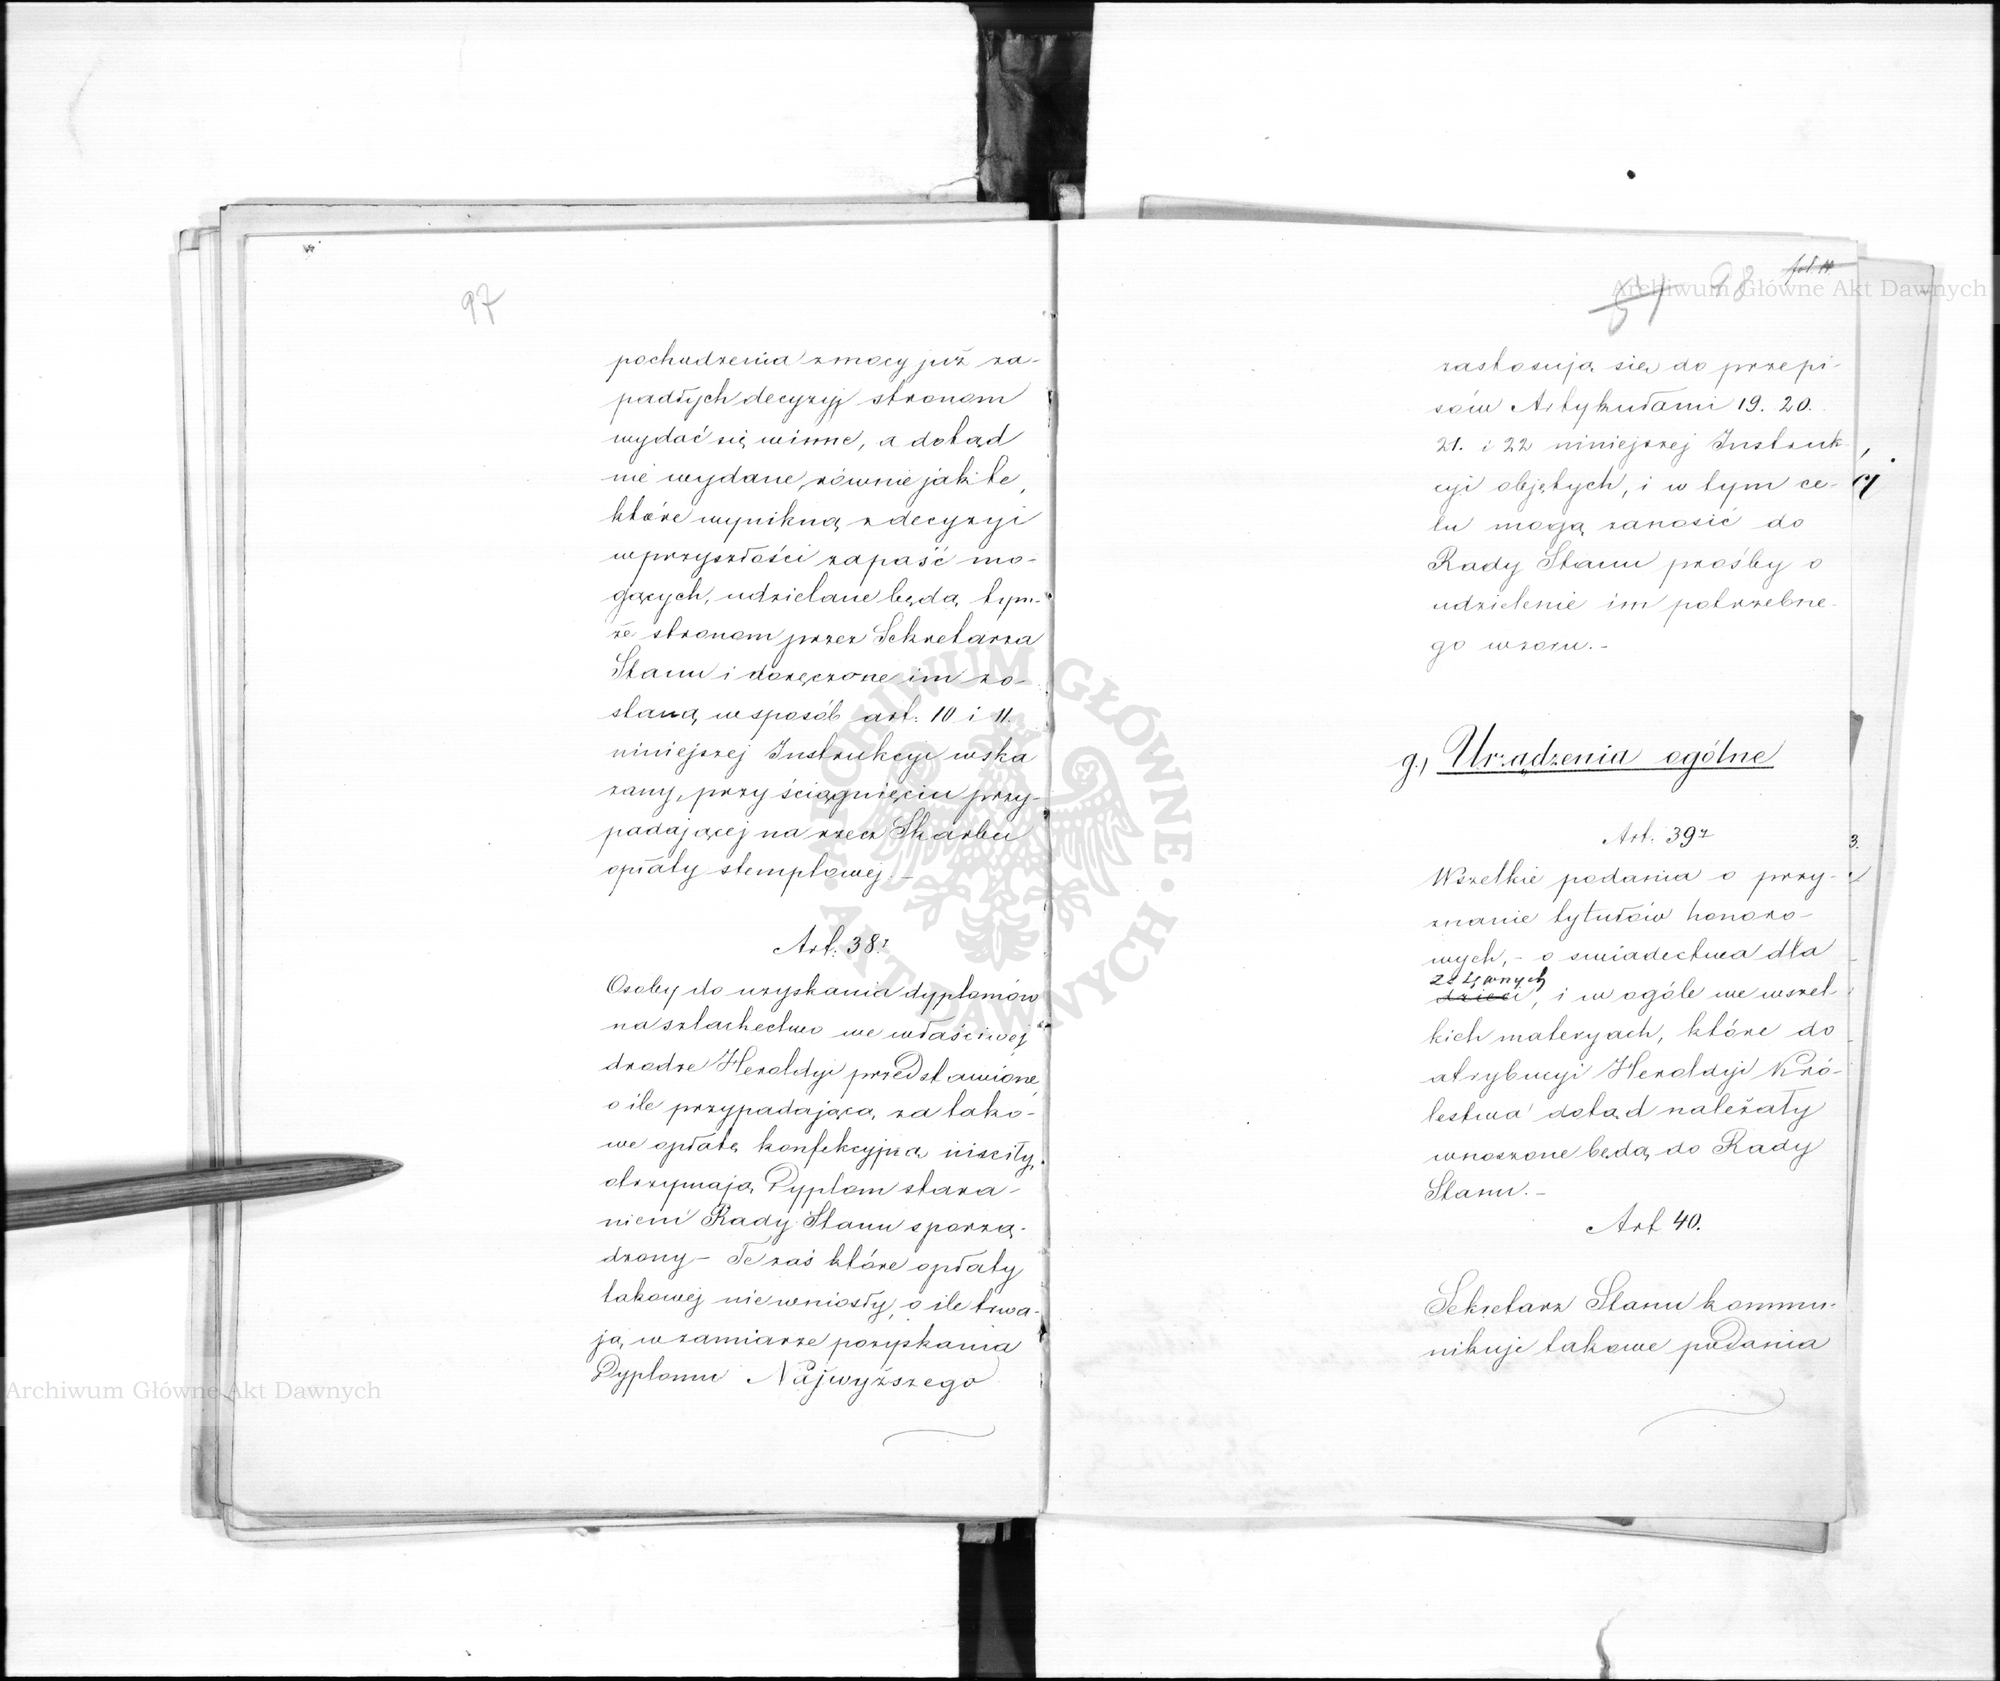 97
pochodzenia z mocy już za-
padłych decyzyj stronom
wydać się winne, a dotąd
nie wydane, równie jak te,
które wynikną z decyzyi
w przyszłości zapaść mo-
gących, udzielane będą tym-
że stronom przez Sekretarza
Stanu i doręczone im zo-
staną w sposób art: 10 i 11.
niniejszej Instrukcyi wska
zany, przy ściągnięciu przy-
padającej na rzecz Skarbu
opłaty stemplowej. –
Art: 38.
Osoby do uzyskania dyplomów
na szlachectwo we właściwej
drodze Heroldyi przedstawione,
o ile przypadającą za tako-
we opłatę konfekcyjną uiściły,
otrzymają Dyplom stara-
niem Rady Stanu sporzą-
dzony – Te zaś które opłaty
takowej nie wniosły, o ile trwa-
ją w zamiarze pozyskania
Dyplomu Najwyższego
fol. 14.
98
51
zastosują się do przepi-
sów Artykułami 19. 20.
21. i 22 niniejszej Instruk-
cyi objętych, i w tym ce-
lu mogą zanosić do
Rady Stanu prośby o
udzielenie im potrzebne-
go wzoru. –
g., Urządzenia ogólne
Art: 39
Wszelkie podania o przy-
znanie tytułów honoro-
wych, – o swiadectwa dla
dzieci, i w ogóle we wszel-
kich materyach, które do
atrybucyi Heroldyi Kró-
lestwa dotąd należały
wnoszone będą do Rady
Stanu. –
Art 40.
Sekretarz Stanu kommu-
nikuje takowe podania
Archiwum Główne Akt Dawnych
Archiwum Główne Akt Dawnych
ARCHIWUM GŁÓWNE · AKT DAWNYCH ·